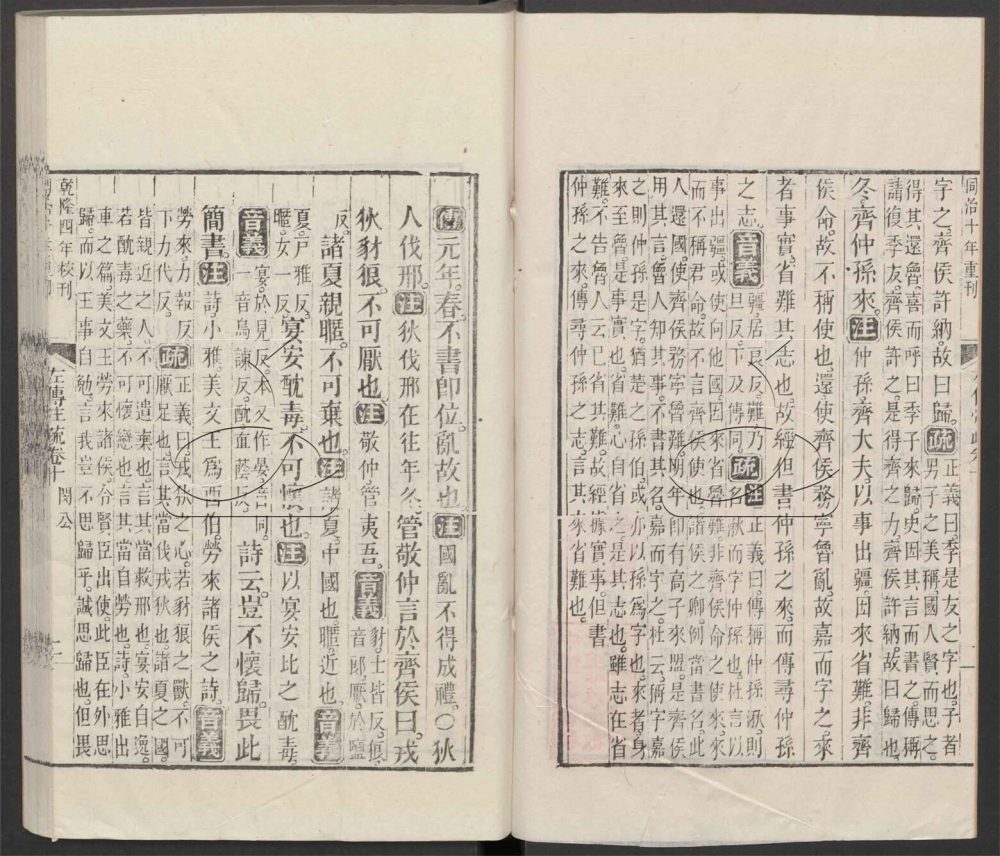 同治十年重刊
字之。齊侯許納。故曰歸。疏正義曰。季是友之字也。子者
男子之美稱。國人賢而思之
得其還魯。喜而呼曰季子來歸。史因其言而書之。傳稱
請復季友。齊侯許之。是得齊之力。齊侯許納。故曰歸也
冬。齊仲孫來。注仲孫。齊大夫。以事出疆。因來省難。非齊
侯命。故不稱使也。還使齊侯務寧魯亂。故嘉而字之。來
者事實。省難其志也。故經但書仲孫之來。而傳尋仲孫
之志。音義疆。居良反。難。乃
旦反。下及傳同。疏注正義曰。傳稱仲孫湫。則
名湫而字仲孫也。杜言以
事出疆。或使向他國。因來省魯難。非齊侯命之使來。來
而不稱君命。故不言齊侯使也。諸侯之卿。例當書名。此
人還國。使齊侯務寧魯難。明年卽有高子來盟。是齊侯
用其言。魯人知其事。不書其名。嘉而字之。杜云。稱字嘉
之。則仲孫是字。猶楚之孫伯。或亦以孫爲字也。來者。身
來至魯。是事實也。省難。心自省之。是其志也。雖志在省
難。不告魯人云已省其難。故經據實事。但書
仲孫之來。傳尋仲孫之志。言其來省難也。
傳元年。春。不書卽位。亂故也。注國亂不得成禮。〇狄
人伐邢。注狄伐邢在往年冬。管敬仲言於齊侯曰。戎
狄豺狼。不可厭也。注敬仲。管夷吾。音義豺。士皆反。狼。
音郎。厭。於鹽
反。諸夏親暱。不可棄也。注諸夏。中國也。暱。近也。音義
夏。戶雅反。
暱。女一反。宴安酖毒。不可懷也。注以宴安比之酖毒。
音義宴。於見反。本又作晏。音同。
一音烏諫反。酖。直蔭反。詩云。豈不懷歸。畏此
簡書。注詩小雅。美文王爲西伯。勞來諸侯之詩。音義
勞來。力報反。
下力代反。疏正義曰。戎狄之心。若豺狼之獸。不可
厭足也。言其當伐戎狄也。諸夏之國
皆親近之人。不可遺棄也。言其當救邢也。宴安自逸。
若酖毒之藥。不可懷戀也。言其當自勞也。詩小雅出
車之篇。美文王勞來諸侯。令賢臣出使。此臣在外思
歸。而以王事自勉。言我豈不思歸乎。誠思歸也。但畏
乾隆四年校刊
左傳注疏卷十
閔公
二